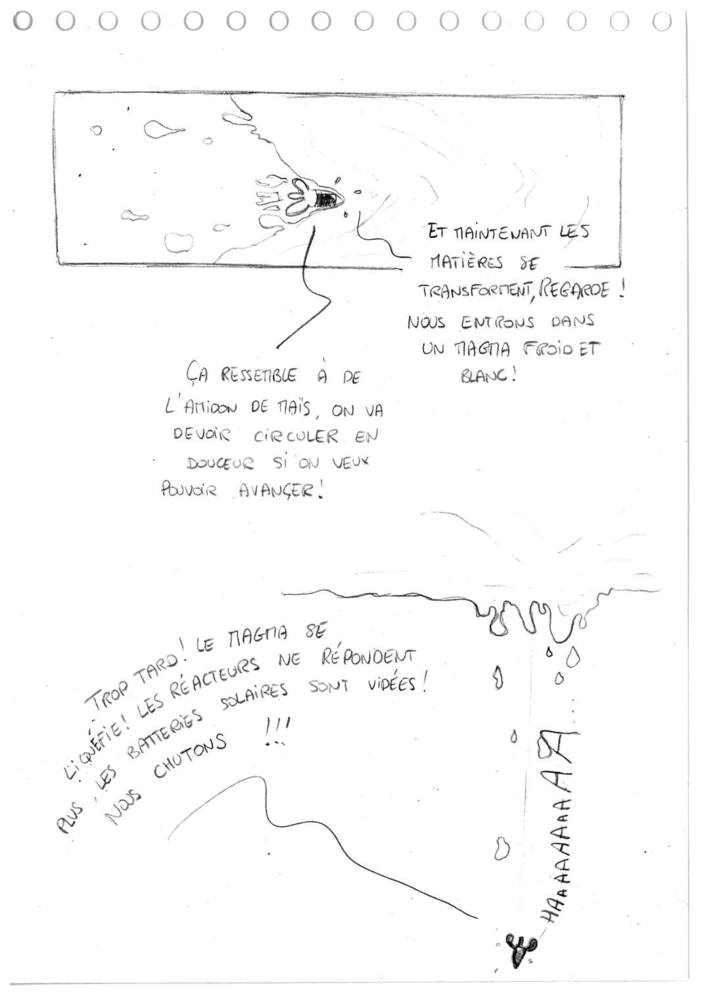 ET MAINTENANT LES
MATIÈRES SE
TRANSFORMENT, REGARDE !
NOUS ENTRONS DANS
UN MAGMA FROID ET
BLANC !
ÇA RESSEMBLE À DE
L'AMIDON DE MAÏS, ON VA
DEVOIR CIRCULER EN
DOUCEUR SI ON VEUX
POUVOIR AVANÇER !
TROP TARD ! LE MAGMA SE
LIQUÉFIE ! LES RÉACTEURS NE RÉPONDENT
PLUS, LES BATTERIES SOLAIRES SONT VIDÉES !
NOUS CHUTONS !!!